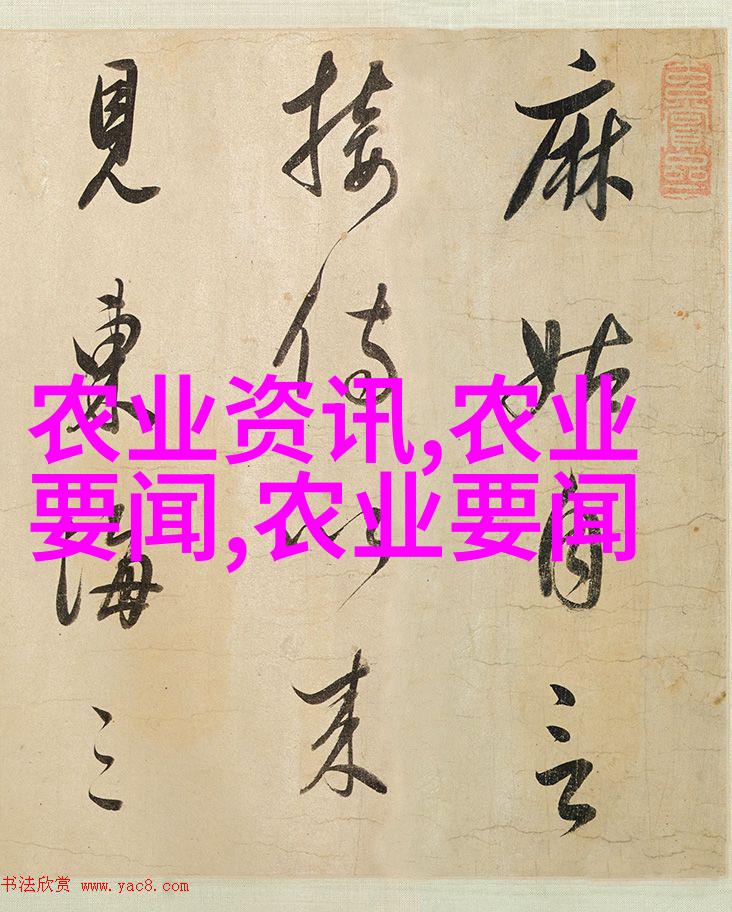 麻姑自言
接侍以来
見東海三
农业资讯,农业
要闻,农业要闻
书法欣赏 www.yac8.com